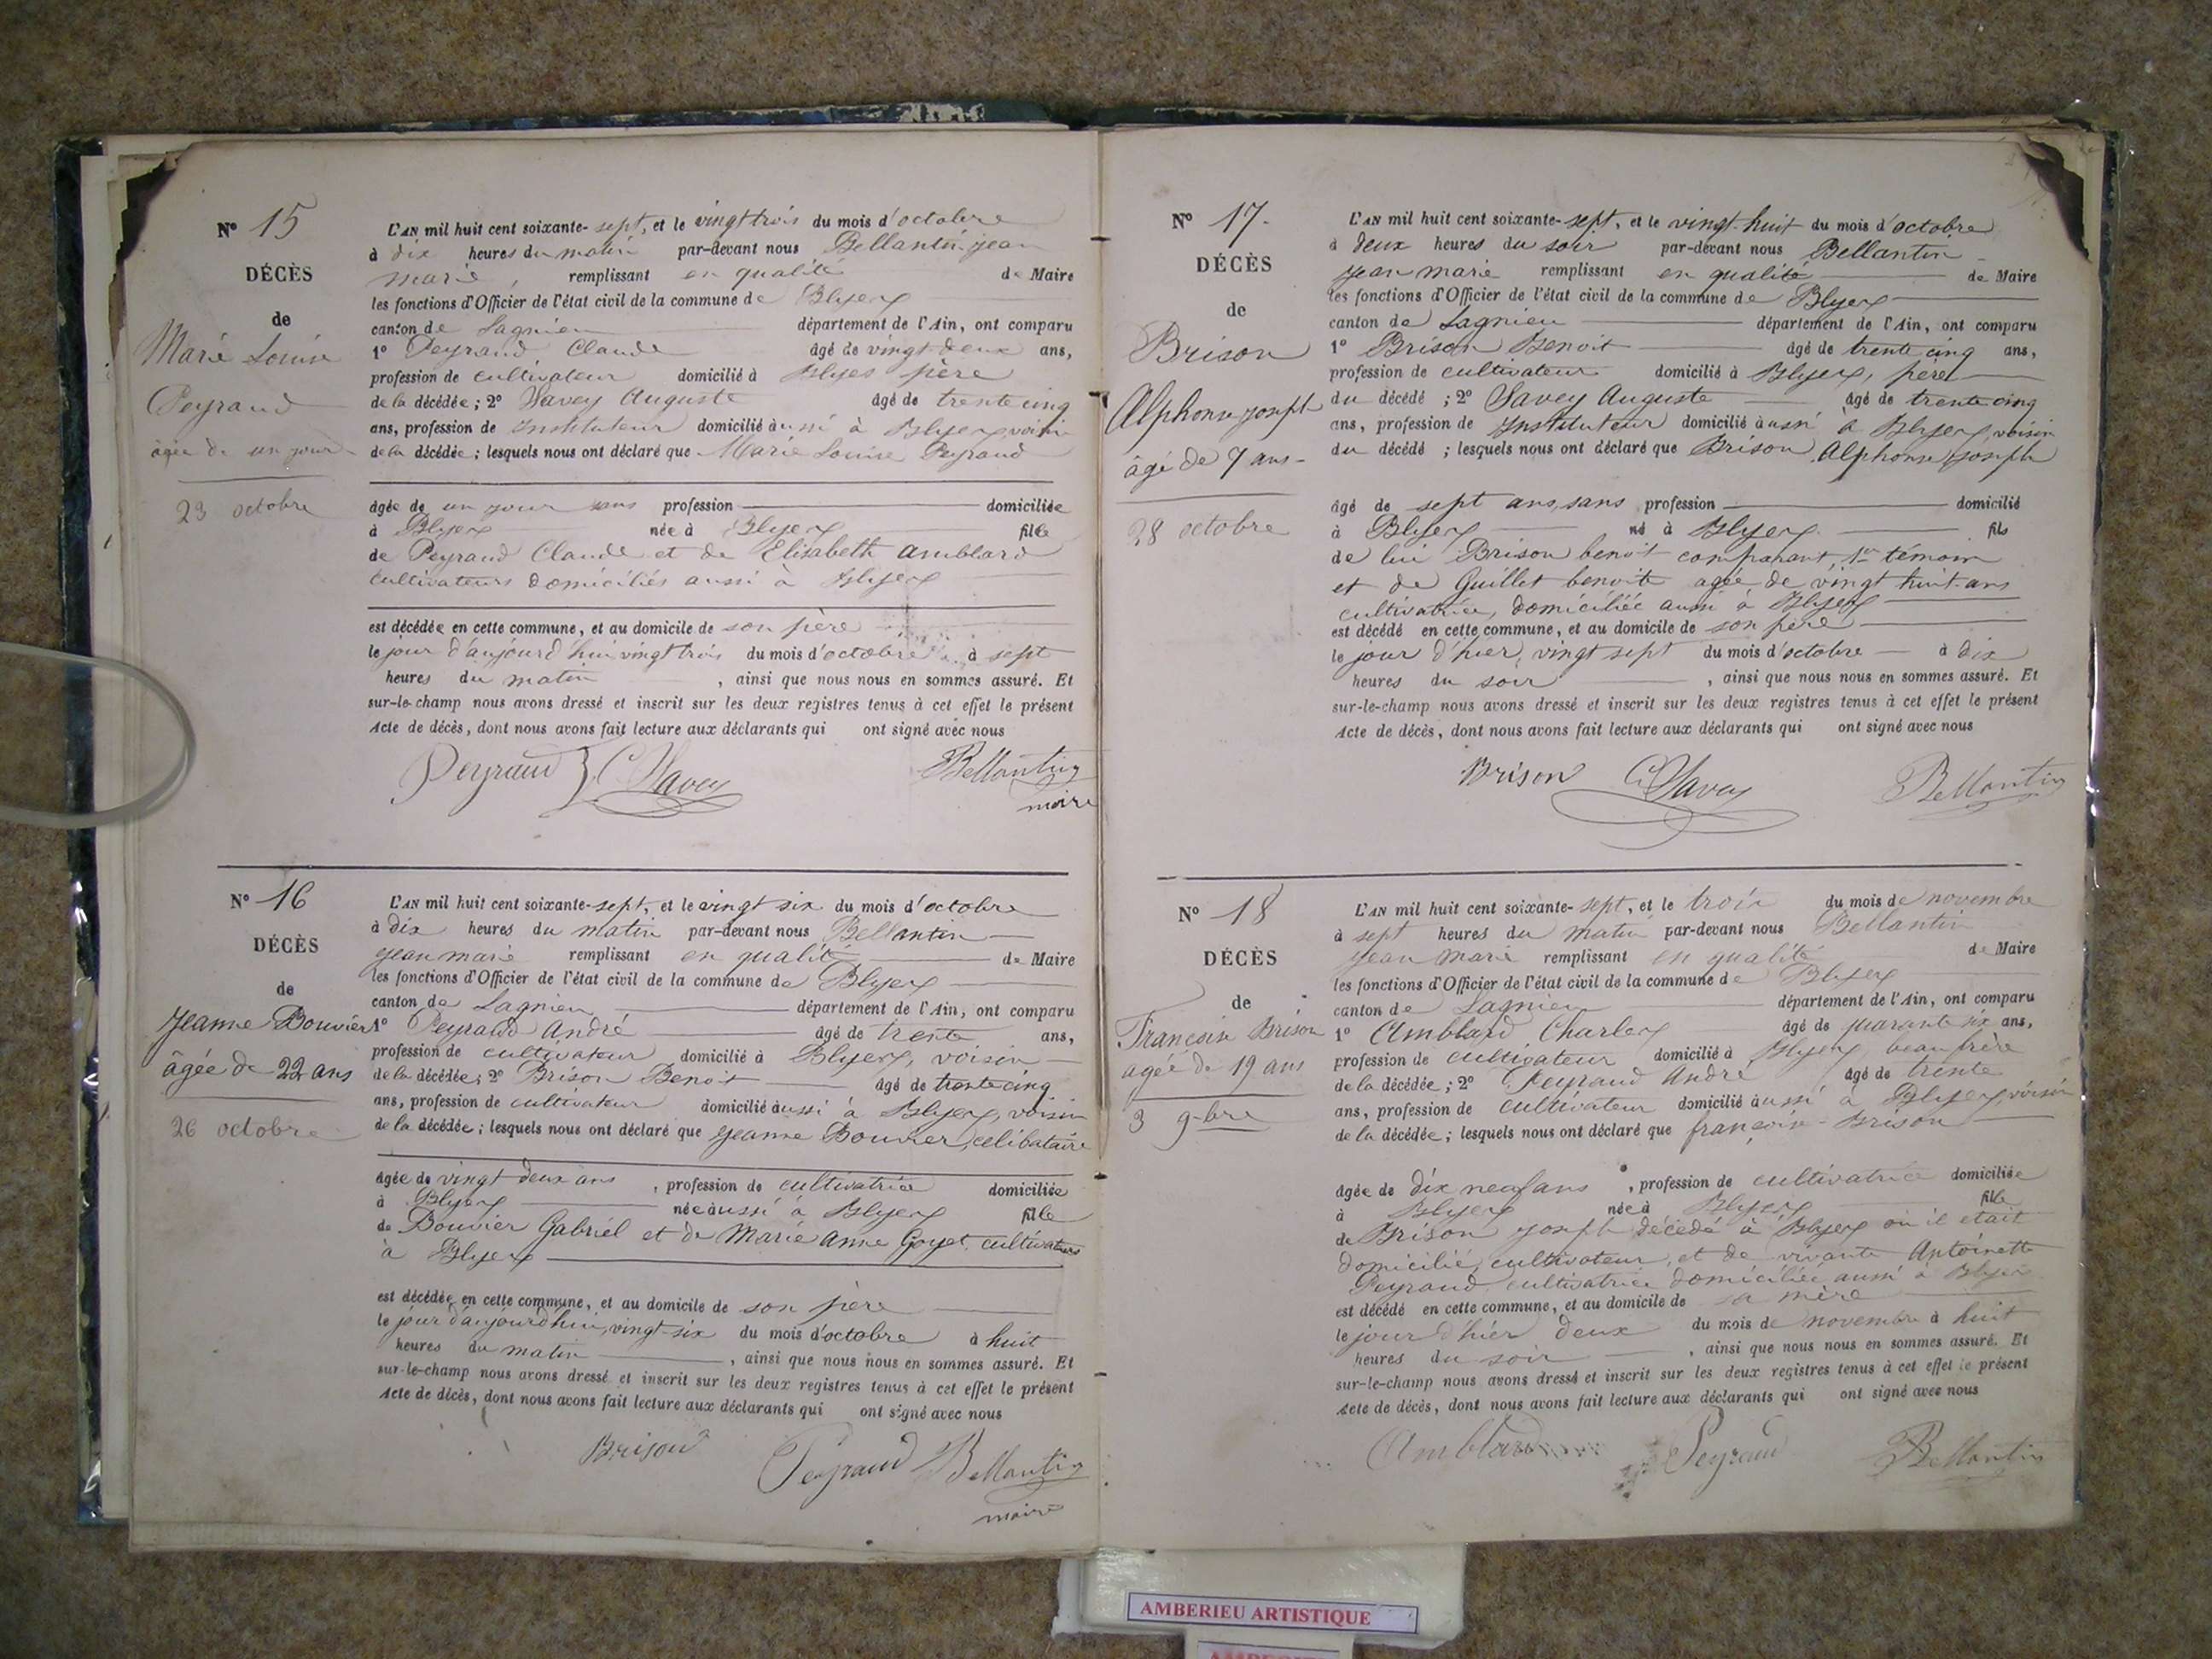 N° 15
DÉCÈS
de
Marie Louise
Peyraud
âgée de un jour
23 octobre
L'AN mil huit cent soixante-sept, et le vingt trois du mois d'octobre
à dix heures du matin par-devant nous Bellantin jean
marie, remplissant en qualité de Maire
les fonctions d'Officier de l'état civil de la commune de Blyes
canton de Lagnieu département de l'Ain, ont comparu
1° Peyraud Claude âgé de vingt deux ans,
profession de cultivateur domicilié à Blyes père
de la décédée; 2° Savey Auguste âgé de trente cinq
ans, profession de Instituteur domicilié aussi à Blyes, voisin
de la décédée; lesquels nous ont déclaré que Marie Louise Peyraud
âgée de un jour sans profession domiciliée
à Blyes née à Blyes fille
de Peyraud Claude et de Elisabeth Amblard
cultivateurs domiciliés aussi à Blyes
est décédée en cette commune, et au domicile de son père
le jour d'aujourd'hui vingt trois du mois d'octobre à sept
heures du matin, ainsi que nous nous en sommes assuré. Et
sur-le-champ nous avons dressé et inscrit sur les deux registres tenus à cet effet le présent
Acte de décès, dont nous avons fait lecture aux déclarants qui ont signé avec nous
Peyraud Savey Bellantin
maire
N° 16
DÉCÈS
de
Jeanne Bouvier
âgée de 22 ans
26 octobre
L'AN mil huit cent soixante-sept, et le vingt six du mois d'octobre
à dix heures du matin par-devant nous Bellantin
jean marie remplissant en qualité de Maire
les fonctions d'Officier de l'état civil de la commune de Blyes
canton de Lagnieu département de l'Ain, ont comparu
1° Peyraud André âgé de trente ans,
profession de cultivateur domicilié à Blyes, voisin
de la décédée; 2° Brison Benoit âgé de trente cinq
ans, profession de cultivateur domicilié aussi à Blyes, voisin
de la décédée; lesquels nous ont déclaré que Jeanne Bouvier, célibataire
âgée de vingt deux ans, profession de cultivatrice domiciliée
à Blyes née aussi à Blyes fille
de Bouvier Gabriel et de Marie Anne Goyet, cultivateurs
à Blyes
est décédée en cette commune, et au domicile de son père
le jour d'aujourd'hui, vingt-six du mois d'octobre à huit
heures du matin, ainsi que nous nous en sommes assuré. Et
sur-le-champ nous avons dressé et inscrit sur les deux registres tenus à cet effet le présent
Acte de décès, dont nous avons fait lecture aux déclarants qui ont signé avec nous
Brison Peyraud Bellantin
maire
N° 17
DÉCÈS
de
Brison
Alphonse joseph
âgé de 7 ans
28 octobre
L'AN mil huit cent soixante-sept, et le vingt-huit du mois d'octobre
à deux heures du soir par-devant nous Bellantin
jean marie remplissant en qualité de Maire
les fonctions d'Officier de l'état civil de la commune de Blyes
canton de Lagnieu département de l'Ain, ont comparu
1° Brison Benoit âgé de trente cinq ans,
profession de cultivateur domicilié à Blyes, père
du décédé; 2° Savey Auguste âgé de trente cinq
ans, profession de Instituteur domicilié aussi à Blyes, voisin
du décédé; lesquels nous ont déclaré que Brison Alphonse joseph
âgé de sept ans, sans profession domicilié
à Blyes né à Blyes fils
de lui Brison benoit comparant, 1er témoin
et de Guillet benoite agée de vingt huit ans
cultivatrice, domiciliée aussi à Blyes
est décédé en cette commune, et au domicile de son père
le jour d'hier, vingt sept du mois d'octobre à dix
heures du soir, ainsi que nous nous en sommes assuré. Et
sur-le-champ nous avons dressé et inscrit sur les deux registres tenus à cet effet le présent
Acte de décès, dont nous avons fait lecture aux déclarants qui ont signé avec nous
Brison Savey Bellantin
N° 18
DÉCÈS
de
Françoise Brison
agée de 19 ans
3 9bre
L'AN mil huit cent soixante-sept, et le trois du mois de novembre
à sept heures du matin par-devant nous Bellantin
jean marie remplissant en qualité de Maire
les fonctions d'Officier de l'état civil de la commune de Blyes
canton de Lagnieu département de l'Ain, ont comparu
1° Amblard Charles âgé de quarante six ans,
profession de cultivateur domicilié à Blyes, beau frère
de la décédée; 2° Peyraud André âgé de trente
ans, profession de cultivateur domicilié aussi à Blyes, voisin
de la décédée; lesquels nous ont déclaré que françoise Brison
âgée de dix neuf ans, profession de cultivatrice domiciliée
à Blyes née à Blyes fille
de Brison joseph décédé à Blyes où il était
domicilié, cultivateur, et de vivante Antoinette
Peyraud cultivatrice domiciliée aussi à Blyes
est décédé en cette commune, et au domicile de sa mère
le jour d'hier deux du mois de novembre à huit
heures du soir, ainsi que nous nous en sommes assuré. Et
sur-le-champ nous avons dressé et inscrit sur les deux registres tenus à cet effet le présent
Acte de décès, dont nous avons fait lecture aux déclarants qui ont signé avec nous
Amblard Peyraud Bellantin
AMBERIEU ARTISTIQUE